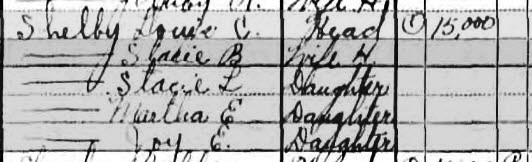 Wife H
Shelby Louie C. Head ① 15,000
—— Stacie B Wife H
—— Stacie L Daughter
—— Martha E Daughter
—— Joy E. Daughter